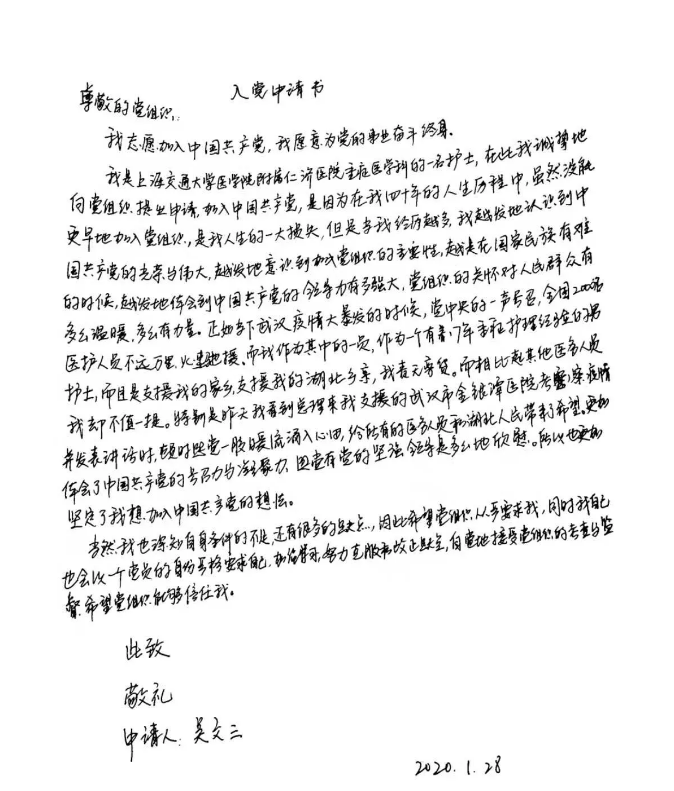 入党申请书
尊敬的党组织:
我志愿加入中国共产党,我愿意为党的事业奋斗终身。
我是上海交通大学医学院附属仁济医院重症医学科的一名护士,在此我诚挚地
向党组织提出申请,加入中国共产党,是因为在我四十年的人生历程中,虽然没能
更早地加入党组织,是我人生的一大损失,但是当我经历越多,我越发地认识到中
国共产党的光荣与伟大,越发地意识到加入党组织的重要性,越是在国家民族有难
的时候,越发地体会到中国共产党的领导力有多强大,党组织的关怀对人民群众有
多么温暖,多么有力量。正如当下武汉疫情大暴发的时候,党中央的一声号召,全国200多名
医护人员不远万里,火速驰援。而我作为其中的一员,作为一个有着17年重症护理经验的男
护士,而且是支援我的家乡,支援我的湖北乡亲,我责无旁贷。而相比起其他医务人员
我却不值一提。特别是昨天我看到总理来我支援的武汉市金银潭医院考察疫情
并发表讲话时,顿时感觉一股暖流涌入心田,给所有的医务人员和湖北人民带来了希望。更加
体会了中国共产党的号召力与凝聚力,国家有党的坚强领导是多么地欣慰。所以也更加
坚定了我想加入中国共产党的想法。
当然我也深知自身条件的不足,还有很多的缺点,因此希望党组织从严要求我,同时我自己
也会以一个党员的身份严格要求自己,努力克服和改正缺点,自觉地接受党组织的考查与监
督,希望党组织能够信任我。
此致
敬礼
申请人:吴文三
2020.1.28